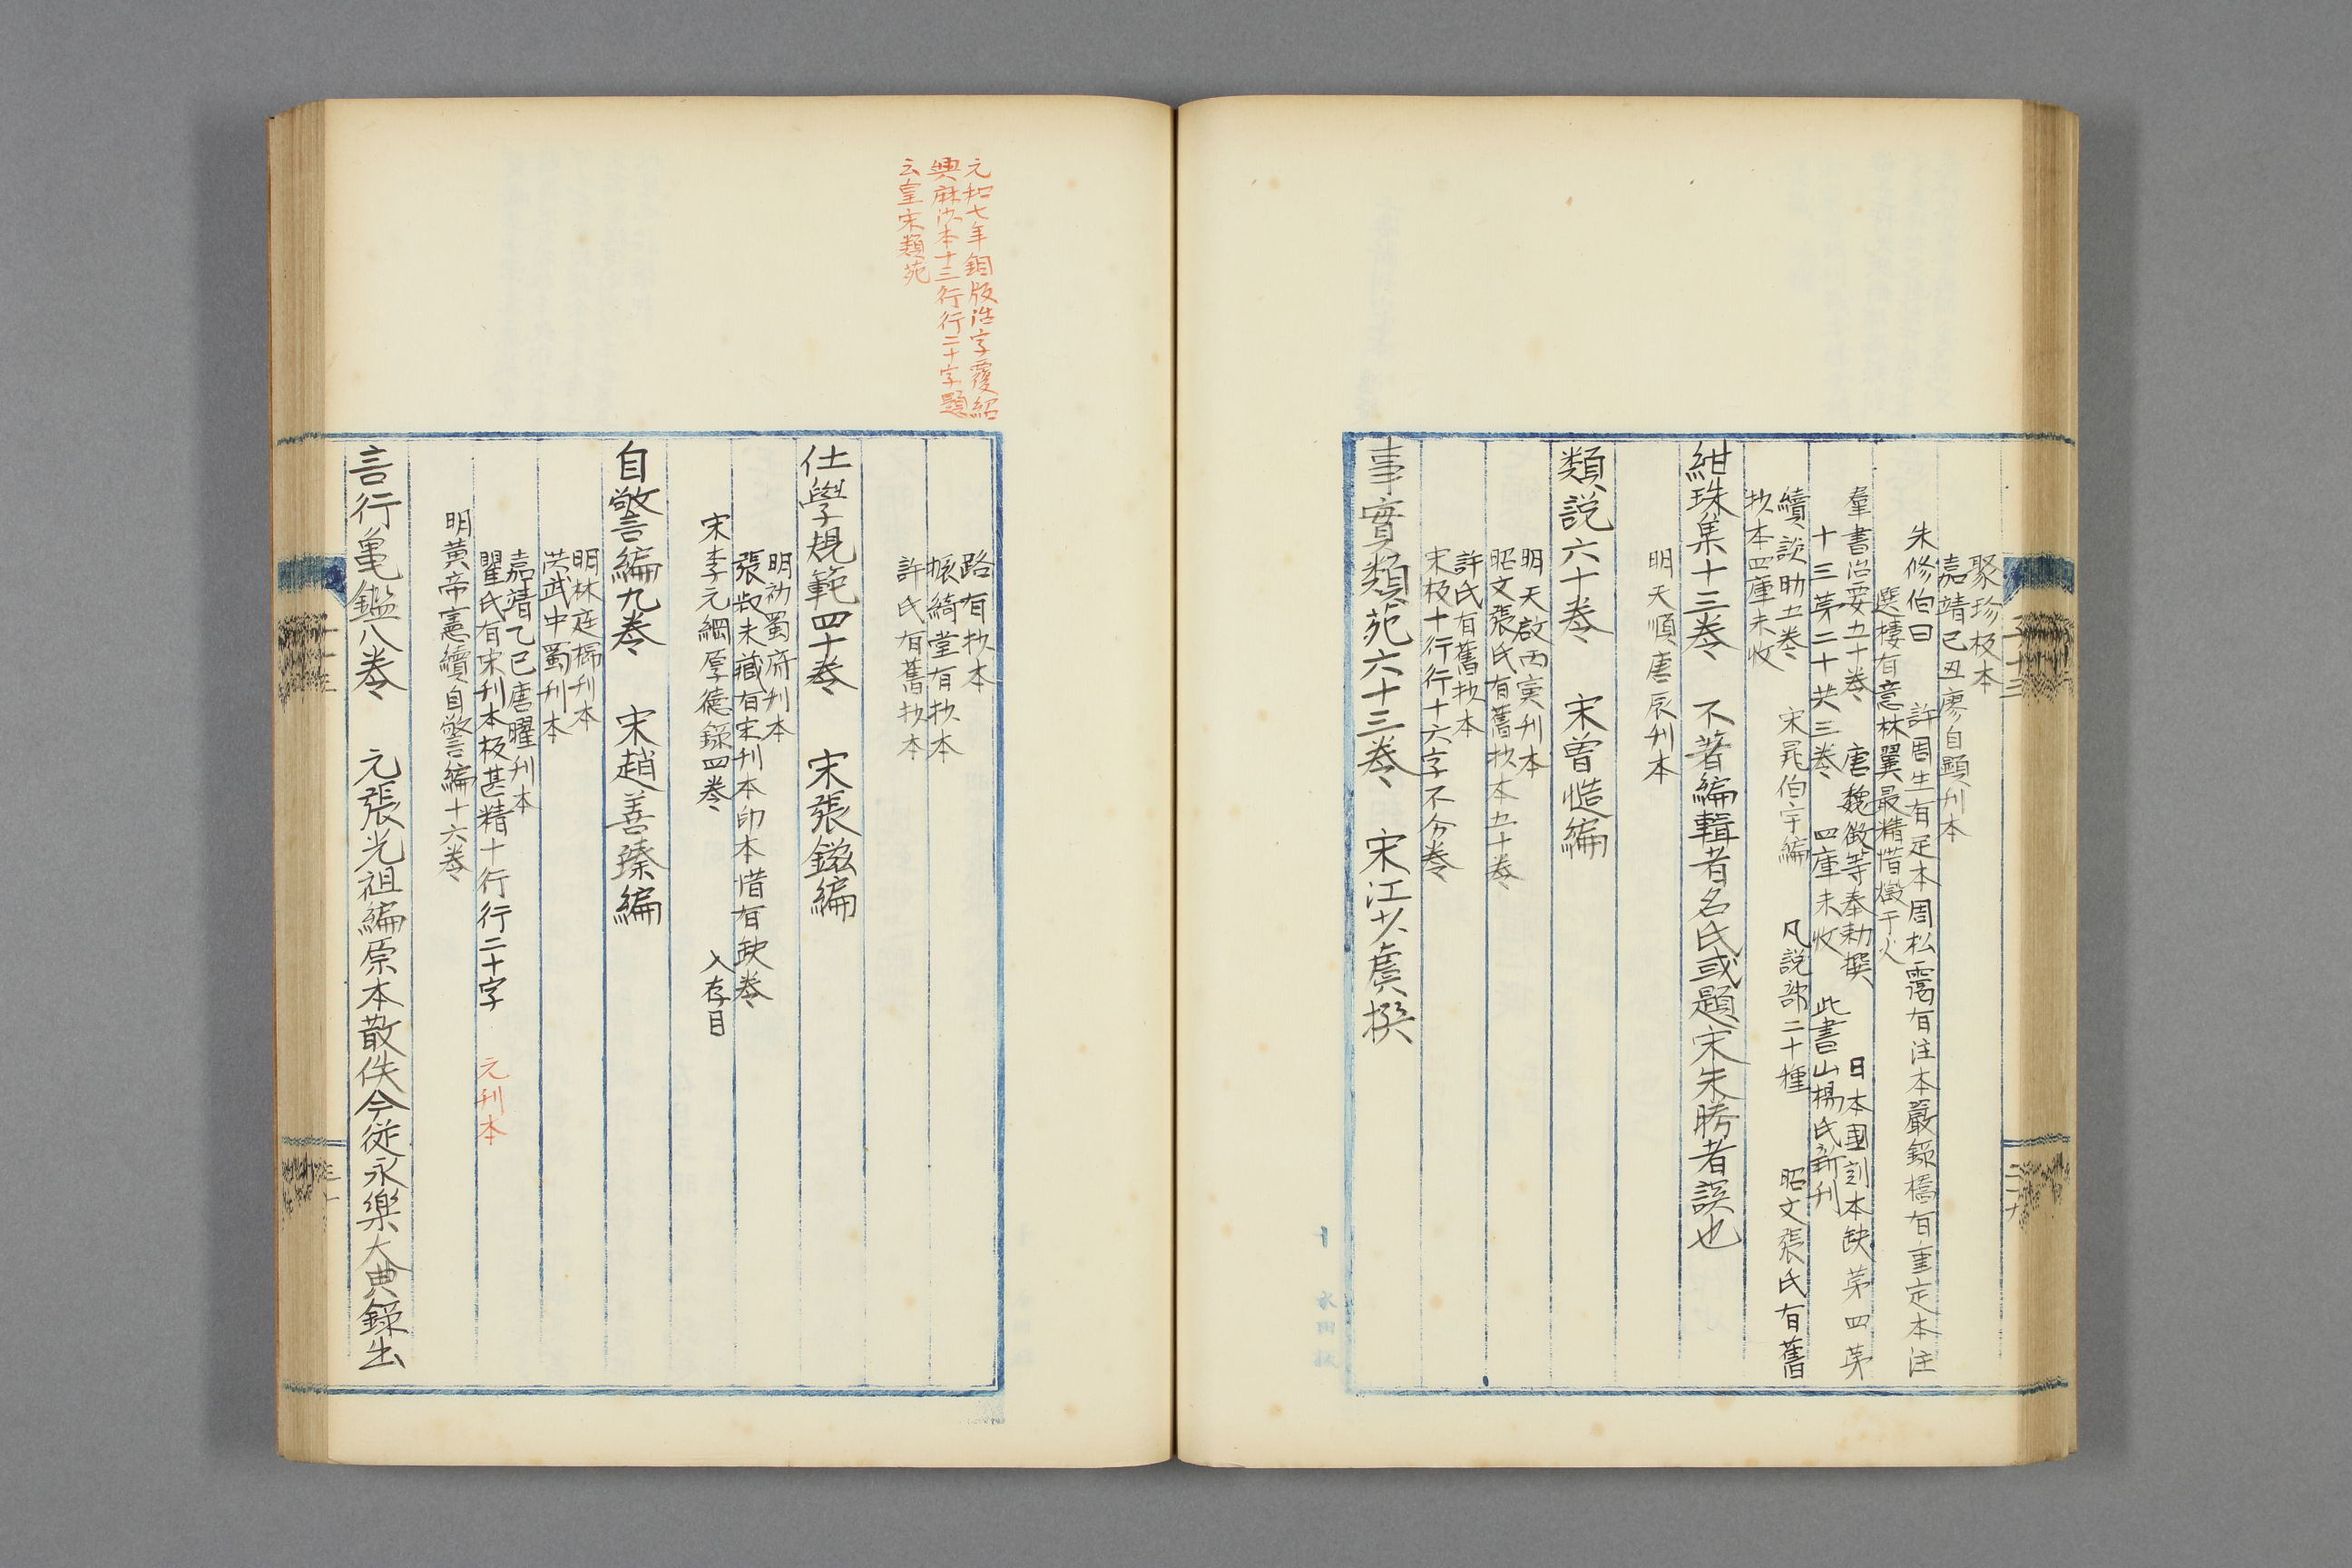 聚珍板本
嘉靖己丑廖自顯刊本
朱修伯曰 許周生有足本周松靄有注本嚴鐌橋有重定本注
選樓有意林翼最精惜燬于火
羣書治要五十卷 唐魏徵等奉勅撰 日本國刻本缺苐四苐
十三苐二十共三卷 四庫未收 此書山楊氏新刊
續談助五卷 宋晁伯宇編 凡說部二十種 昭文張氏有舊
抄本四庫未收
紺珠集十三卷 不著編輯者名氏或題宋朱勝者誤也
明天順庚辰刊本
類說六十卷 宋曾慥編
明天啟丙寅刊本
昭文張氏有舊抄本五十卷
許氏有舊抄本
宋板十行行十六字不分卷
事實類苑六十三卷 宋江少虞撰
元和七年銅版活字覆紹
興麻沙本十三行行二十字題
云皇宋類苑
路有抄本
振綺堂有抄本
許氏有舊抄本
仕學規範四十卷 宋張鎡編
明初蜀府刊本
張叔未藏有宋刊本印本惜有缺卷
宋李元綱厚德錄四卷 入存目
自警編九卷 宋趙善璙編
明林庭㭿刊本
芮武中蜀刊本
嘉靖乙巳唐曜刊本
瞿氏有宋刊本板甚精十行行二十字 元刊本
明黃希憲續自警編十六卷
言行龜鑑八卷 元張光祖編原本散佚今從永樂大典錄出